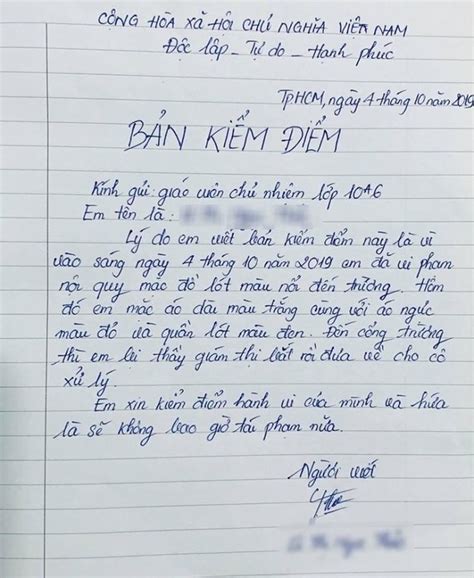 CỘNG HÒA XÃ HỘI CHỦ NGHĨA VIỆT NAM
Độc lập - Tự do - Hạnh phúc
TpHCM, ngày 4 tháng 10 năm 2019
BẢN KIỂM ĐIỂM
Kính gửi: giáo viên chủ nhiệm lớp 10A6
Em tên là:
Lý do em viết bản kiểm điểm này là vì
vào sáng ngày 4 tháng 10 năm 2019 em đã vi phạm
nội quy mặc đồ lót màu nổi đến trường. Hôm
đó em mặc áo dài màu trắng cùng với áo ngực
màu đỏ và quần lót màu đen. Đến cổng trường
thì em lại thầy giám thị bắt rồi đưa về cho cô
xử lý.
Em xin kiểm điểm hành vi của mình và hứa
là sẽ không bao giờ tái phạm nữa.
Người viết